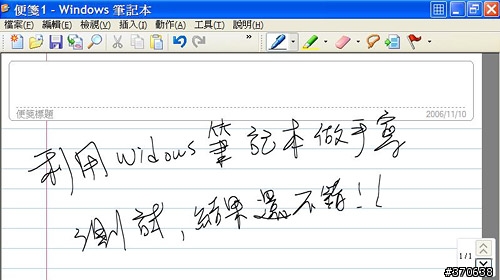 便箋1 - Windows 筆記本
檔案(F) 編輯(E) 檢視(V) 插入(I) 動作(A) 工具(T) 說明(H)
便箋標題
2006/11/10
利用 widows 筆記本做手寫
測試，結果還不錯!!
1/1
#370638